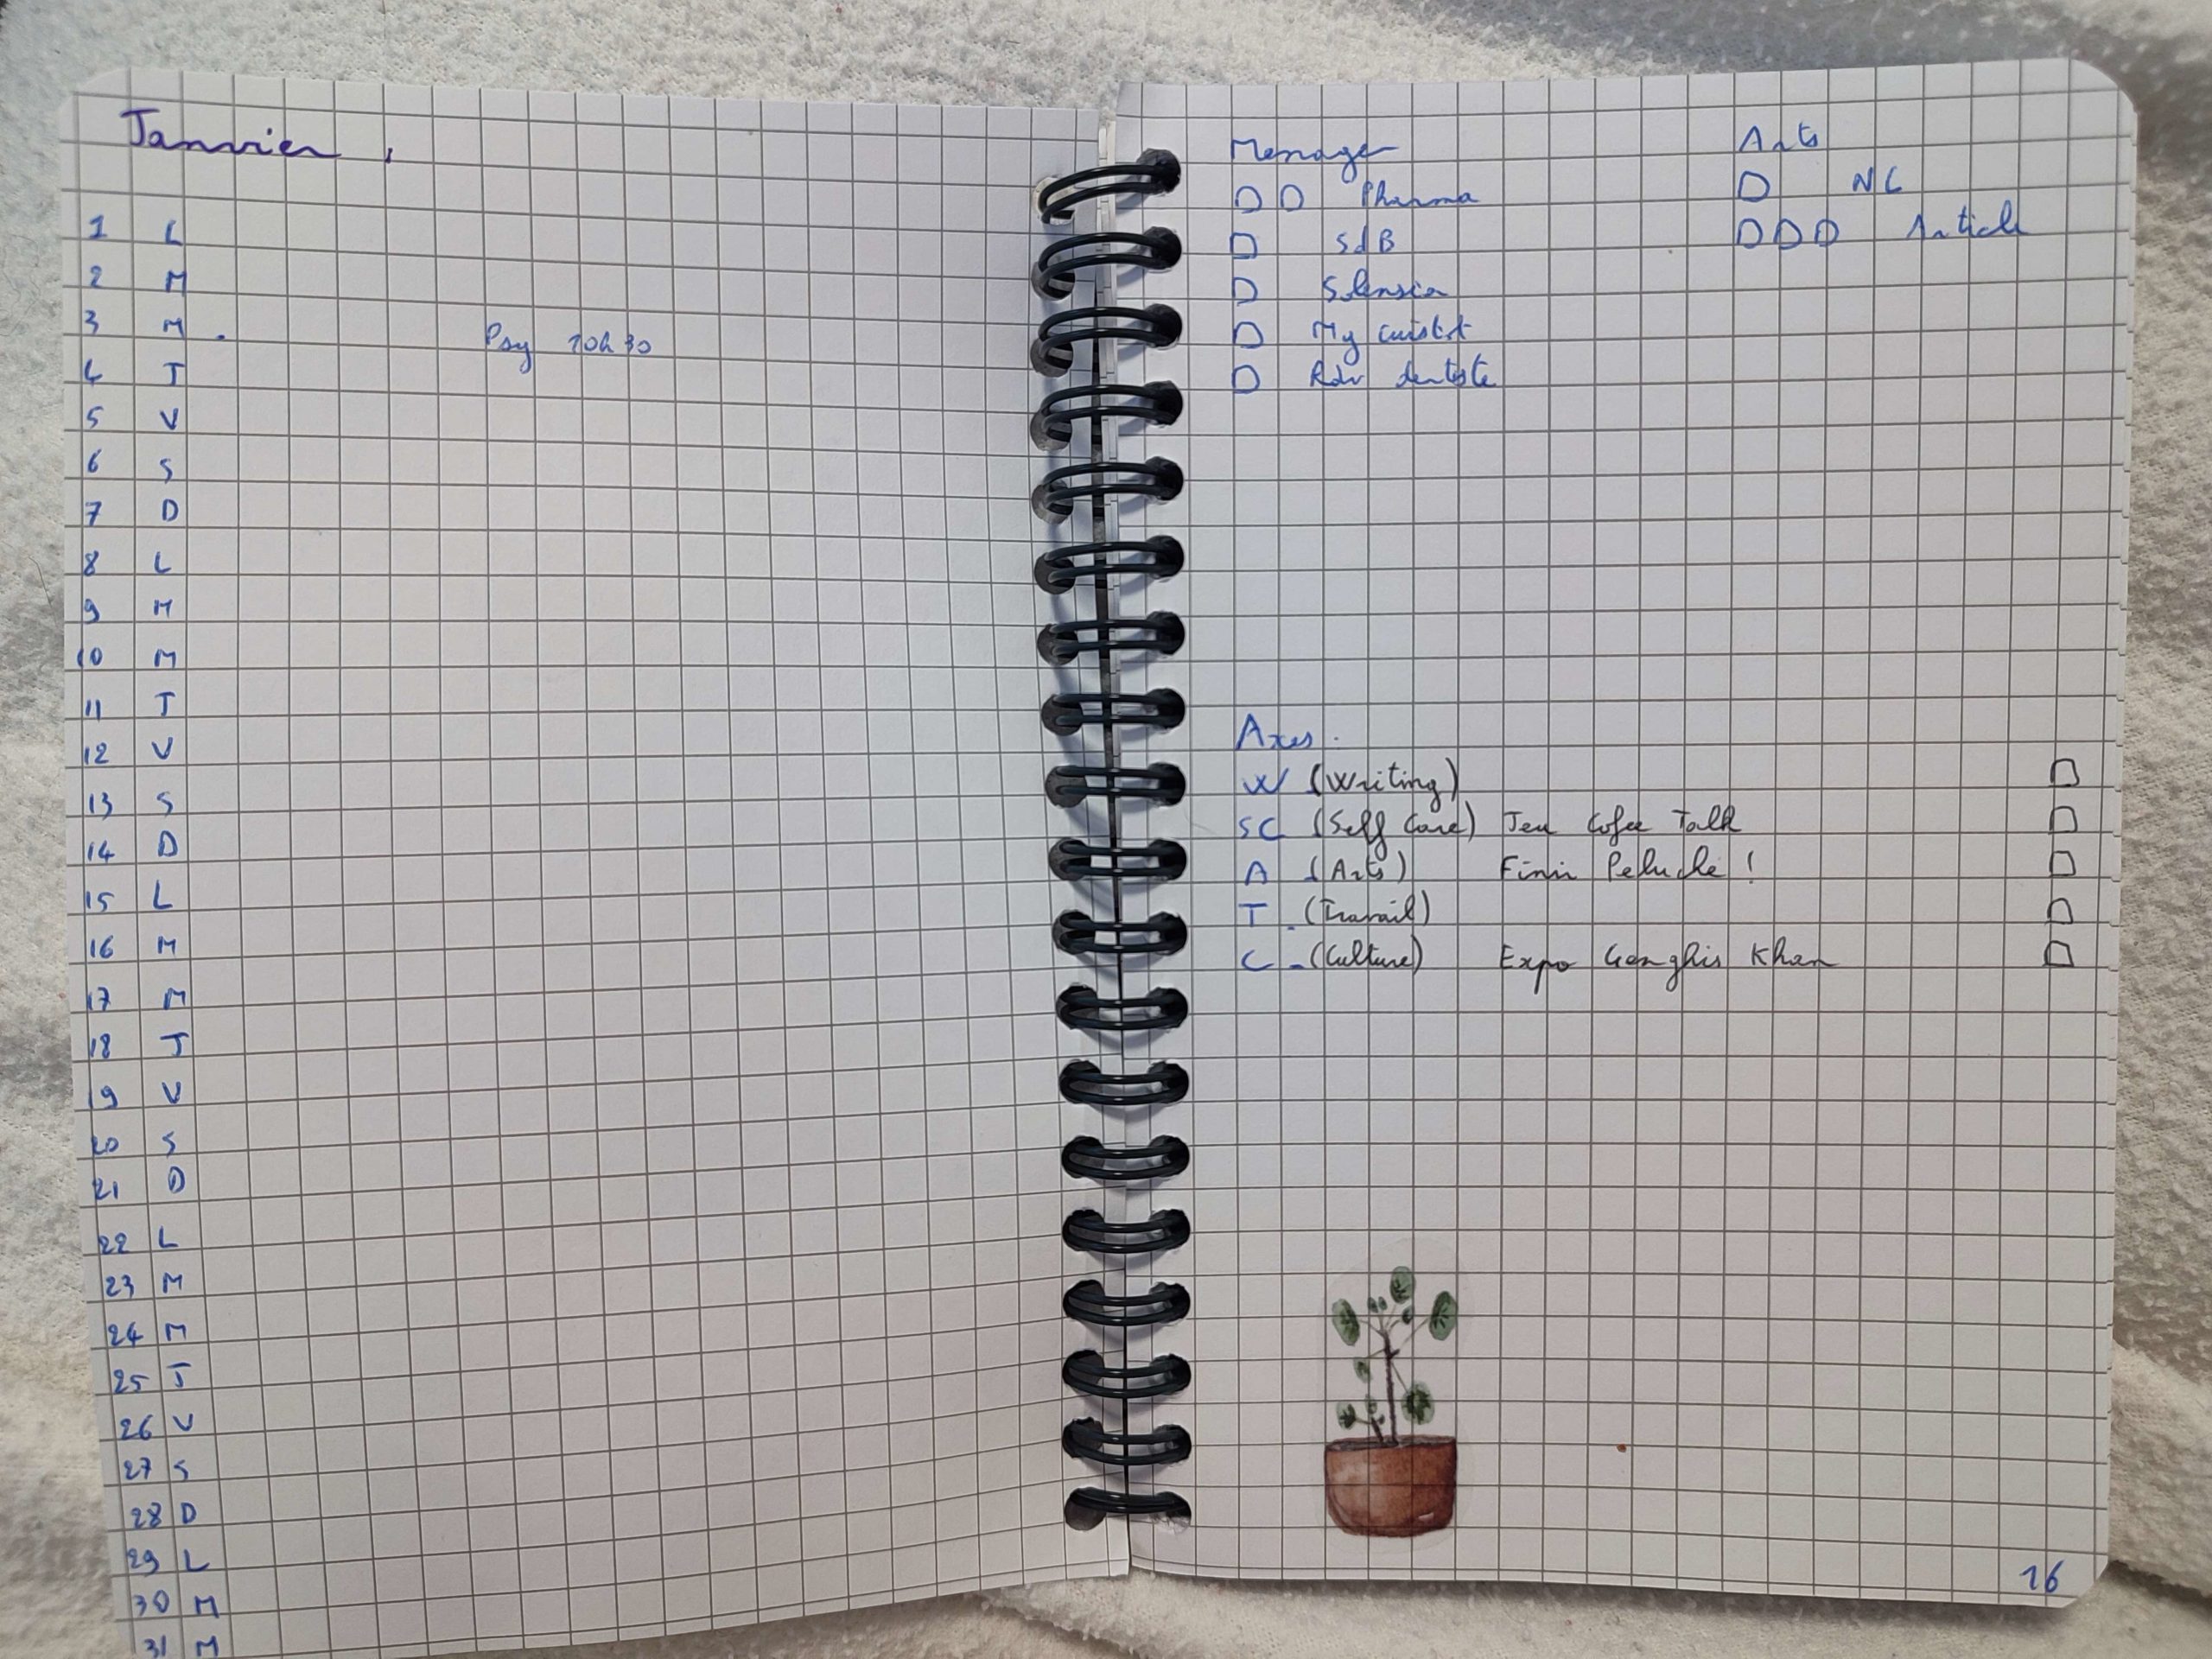 Janvier
1 L
2 M
3 M Psy 10h30
4 J
5 V
6 S
7 D
8 L
9 M
10 M
11 J
12 V
13 S
14 D
15 L
16 M
17 M
18 J
19 V
20 S
21 D
22 L
23 M
24 M
25 J
26 V
27 S
28 D
29 L
30 M
31 M
Menage
Pharma
SdB
Solensia
My
Rdv dentiste
Arts
NC
Article
Axes.
W (Writing)
SC (Self Care) Jeu Cofee Talk
A (Arts) Finir Peluche !
T (Travail)
C (Culture) Expo Genghis Khan
16